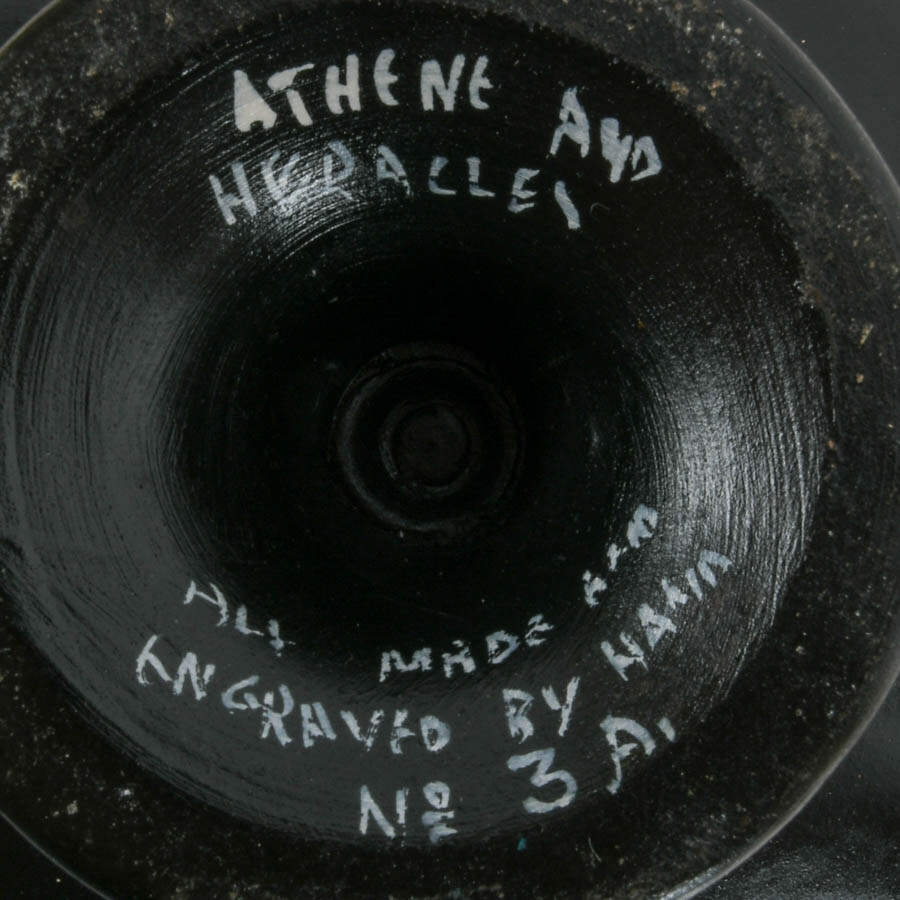 ATHENE AND
HERACLES
ALL MADE AND
ENGRAVED BY HAND
Nº 3 A.